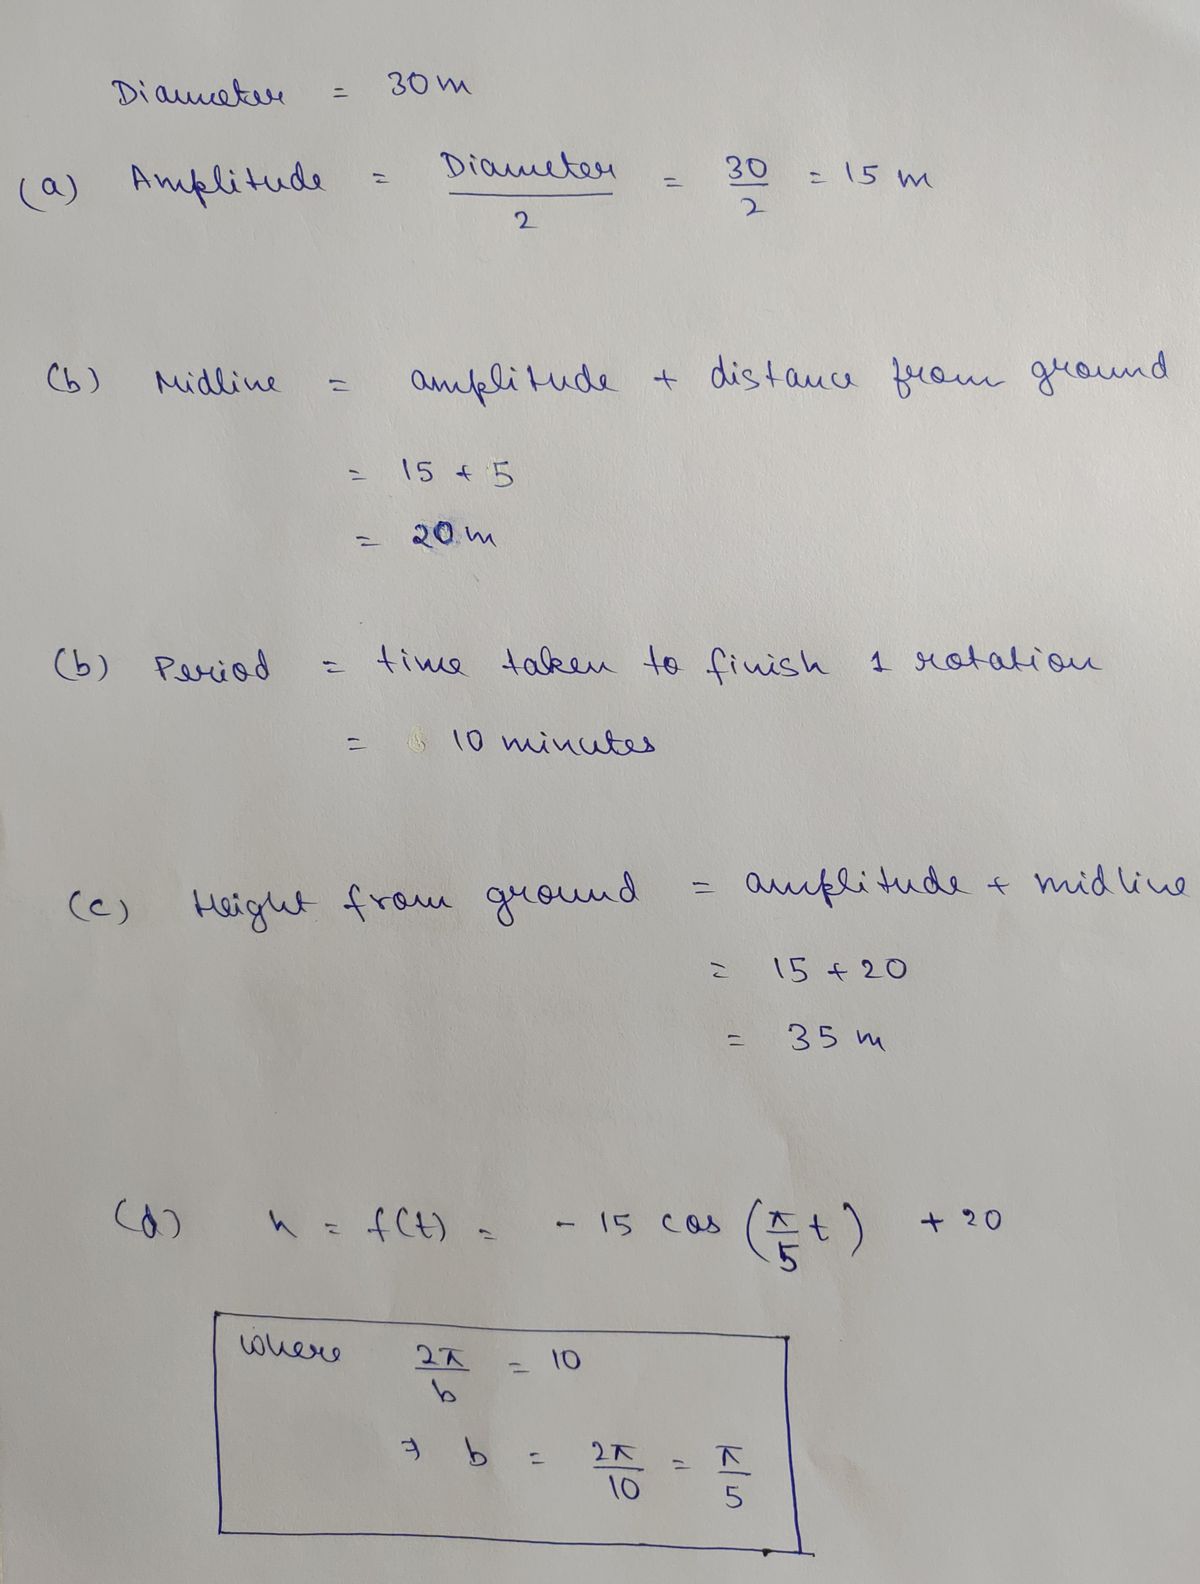 Diameter = 30 m
(a) Amplitude = Diameter / 2 = 30/2 = 15 m
(b) Midline = amplitude + distance from ground
= 15 + 5
= 20 m
(b) Period = time taken to finish 1 rotation
= 10 minutes
(c) Height from ground = amplitude + midline
= 15 + 20
= 35 m
(d) h = f(t) = - 15 cos (π/5 t) + 20
where 2π/b = 10
⇒ b = 2π/10 = π/5